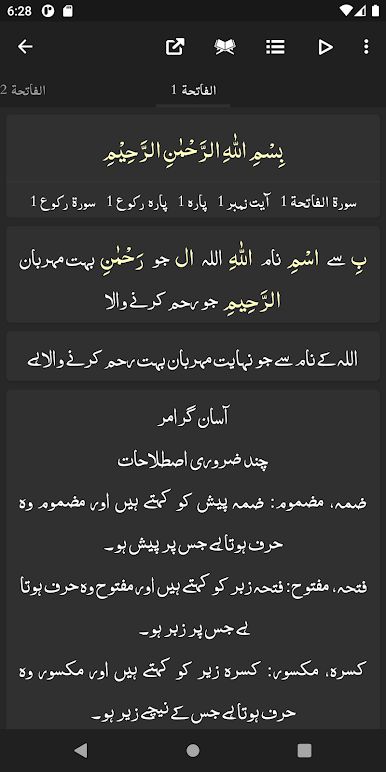 6:28
الفاتحة 1
الفاتحة 2
بِسْمِ اللّٰهِ الرَّحْمٰنِ الرَّحِيْمِ
سورۃ الفاتحۃ 1 آیت نمبر 1 پارہ 1 پارہ رکوع 1 سورۃ رکوع 1
بِ سے اسْمِ نام اللّٰهِ اللہ ال جو رَحْمٰنِ بہت مہربان
الرَّحِيمِ جو رحم کرنے والا
اللہ کے نام سے جو نہایت مہربان بہت رحم کرنے والا ہے
آسان گرامر
چند ضروری اصطلاحات
ضمہ، مضموم: ضمہ پیش کو کہتے ہیں اور مضموم وہ
حرف ہوتا ہے جس پر پیش ہو۔
فتحہ، مفتوح: فتحہ زبر کو کہتے ہیں اور مفتوح وہ حرف ہوتا
ہے جس پر زبر ہو۔
کسرہ، مکسور: کسرہ زیر کو کہتے ہیں اور مکسور وہ
حرف ہوتا ہے جس کے نیچے زیر ہو۔